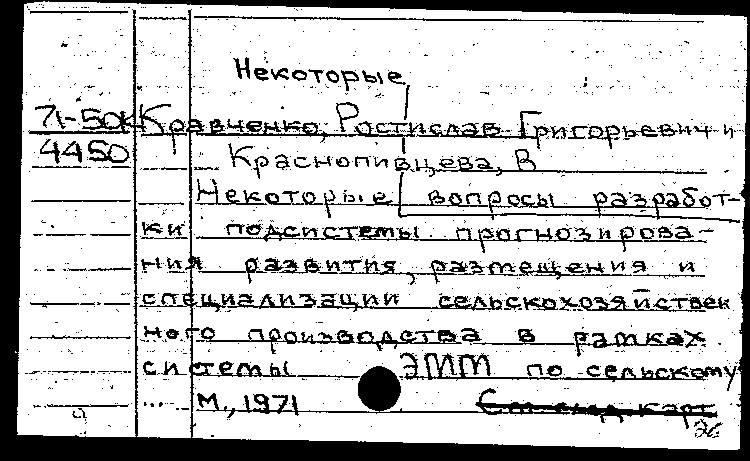 Некоторые
71-50к Кравченко, Ростислав Григорьевич и
4450 Краснопивцева, В
Некоторые вопросы разработ-
ки подсистемы прогнозирова-
ния развития, размещения и
специализации сельскохозяйствен
ного производства в рамках
системы ЭММ по сельскому
... М., 1971 См. след. карт
26